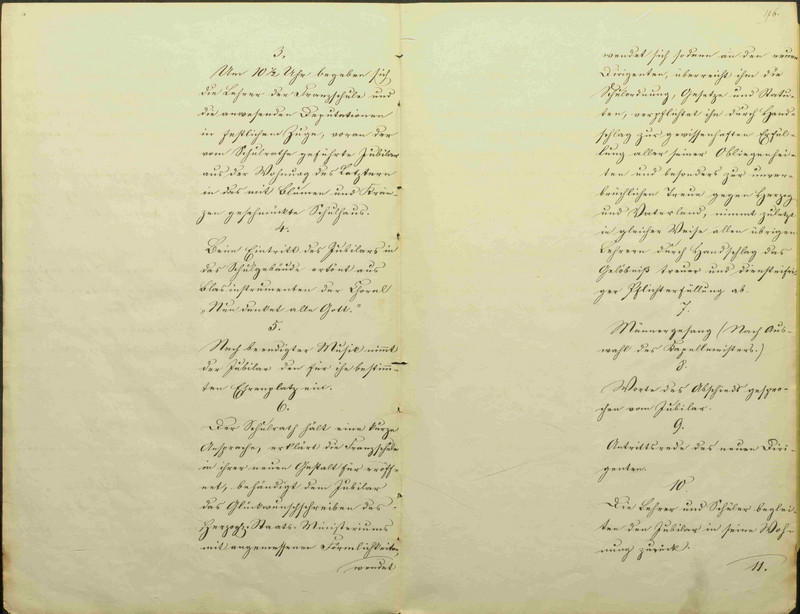 3.
Um 10½ Uhr begeben sich
die Lehrer der Franzschule und
die anwesenden Deputationen
in festlichem Zuge, voran der
vom Schulrathe geführte Jubilar
aus der Wohnung des Letztern
in das mit Blumen und Krän-
zen geschmückte Schulhaus.
4.
Beim Eintritt des Jubilars in
das Schulgebäude ertönt aus
Blasinstrumenten der Choral
„Nun danket alle Gott."
5.
Nach beendigter Musik nimmt
der Jubilar den für ihn bestimm-
ten Ehrenplatz ein.
6.
Der Schulrath hält eine kurze
Ansprache, erklärt die Franzschule
in ihrer neuen Gestalt für eröff-
net, behändigt dem Jubilar
das Glückwunschschreiben des
Herzogl. Staats-Ministeriums
mit angemessenen Förmlichkeiten,
wendet
96.
wendet sich sodann an den neuen
Dirigenten, überreicht ihm die
Schulordnung, Gesetze und Statu-
ten, verpflichtet ihn durch Hand-
schlag zur gewissenhaften Erfül-
lung aller seiner Obliegenhei-
ten und besonders zur unver-
brüchlichen Treue gegen Herzog
und Vaterland, nimmt zuletzt
in gleicher Weise allen übrigen
Lehrern durch Handschlag das
Gelöbniß treuer und diensteifri-
ger Pflichterfüllung ab.
7.
Männergesang (Nach Aus-
wahl des Kapellmeisters.)
8.
Worte des Abschieds gespro-
chen vom Jubilar.
9.
Antrittsrede des neuen Diri-
genten.
10
Die Lehrer und Schüler beglei-
ten den Jubilar in seine Woh-
nung zurück.
11.